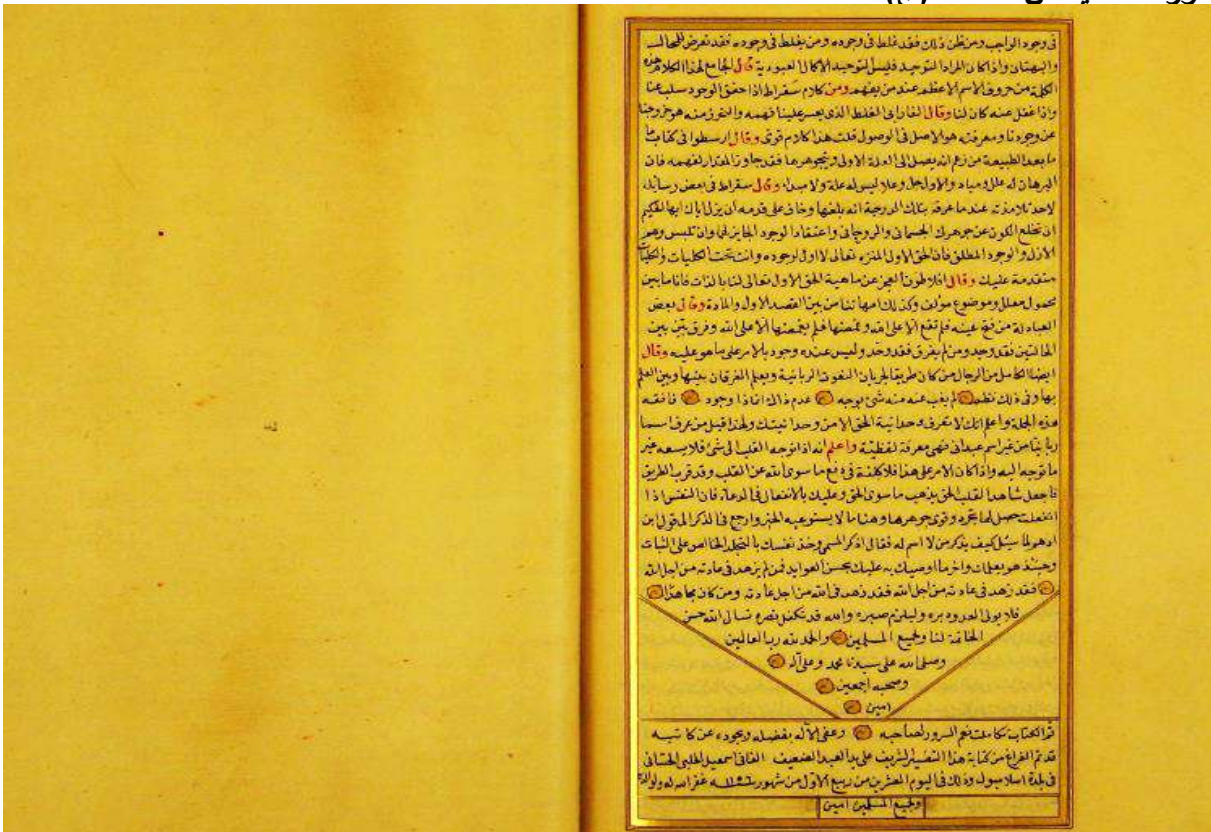 في وجود الواجب ومن ظن ذلك فقد غلط في وجوده ومن يغلط في وجوده فقد تعرض للمحال
والبهتان واذا كان المراد التوحيد فليس لتوحيد الا كمال العبودية قال الجامع لهذا الكلام هذه
الكلمة من حروف الاسم الاعظم عند من يفهم ومن كلام سقراط اذا حقق الوجود سلب عنا
واذا غفل عنه كان لنا وقال الفارابي الغلط الذي يعسر علينا فهمه والتحرز منه هو خروجنا
عن وجودنا ومعرفته هو الاصل في الوصول قلت هذا كلام قوي وقال ارسطوا في كتاب ما
بعد الطبيعة من زعم انه يصل الى العلة الاولى وبجوهرها فقد جاوز المقدار لفهمه فان
البرهان له علل ومباد والاول جل وعلا ليس له علة ولا مبداء وقال سقراط في بعض رسائله
لاحد تلامذته عندما عرفه بتلك الدرجة انه بلغها وخاف على قدمه ان يزل اياك ايها الحكيم
ان تخلع الكون عن جوهرك الجسماني والروحاني واعتقاد الوجود الجايز لها وان تلبس وهم
الازل والوجود المطلق فان الحق الاول المنزه تعالى لا اول لوجوده وانت تحت الكليات والكليات
متقدمة عليك وقال افلاطون العجز عن ماهية الحق الاول تعالى لنا بالذات فانا ما بين
محمول معلل وموضوع مؤلف وكذلك امهاتنا من بين القصد الاول والمادة وقال بعض
العبادلة من فتح عينه فلم تقع الا على الله وغمضها فلم يغمضها الا على الله وفرق بين بين
الحالتين فقد وحد ومن لم يفرق فقد وحد وليس عنده وجود بالامر على ما هو عليه وقال
ايضا الكامل من الرجال من كان طريقا لجريان النعوت الربانية ويعلم الفرقان بينها وبين العلم
بها وفي ذلك نظم لم يغب عنه منه شئ بوجه عدم ذاك اذا وجود فافقه
هذه الجملة واعلم انك لا تعرف وحدانية الحق الا من وحدانيتك ولهذا قيل من عرف اسما
ربانيا من غير اسم عبداني فهي معرفة لفظية واعلم انه اذا توجه القلب الى شئ فلا يسعه غير
ما توجه اليه واذا كان الامر على هذا فلا كلفة في دفع ما سوى الله عن القلب وقد قرب الطريق
فاجعل شاهد القلب الحق يذهب ما سوى الحق وعليك بالانفعال في الدعاء فان النفس اذا
انفعلت حصل لها تجرد وقوي جوهرها وهنا ما لا يستوعبه الخبر وارجع في الذكر الى قول ابن
ادهم لما سئل كيف يذكر من لا اسم له فقال اذكر المسمى وخذ نفسك بالتجلد الخالص على الثبات
وحينئذ هو بعلمك واخر ما اوصيك به عليك بحسن العوايد فمن لم يزهد في عادته من اجل الله
فقد زهد في عادته من اجل الله فقد زهد في الله من اجل عادته ومن كان مجاهدا
فلا يولى العدو دبره وليلزم صبره والله قد تكفل بنصره نسال الله حسن
الخاتمة لنا ولجميع المسلمين والحمد لله رب العالمين
وصلى الله على سيدنا محمد وعلى آله
وصحبه اجمعين
امين
تم الكتاب تكاملت نعم السرور لصاحبه وعفى الاله بفضله وبجوده عن كاتبه
قد تم الفراغ من كتابة هذا التفسير الشريف على يد العبد الضعيف الفاني اسمعيل
في بلدة اسلامبول وذلك في اليوم العشرين من ربيع الاول من شهور سنه غفر الله له ولوالديه
ولجميع المسلمين امين